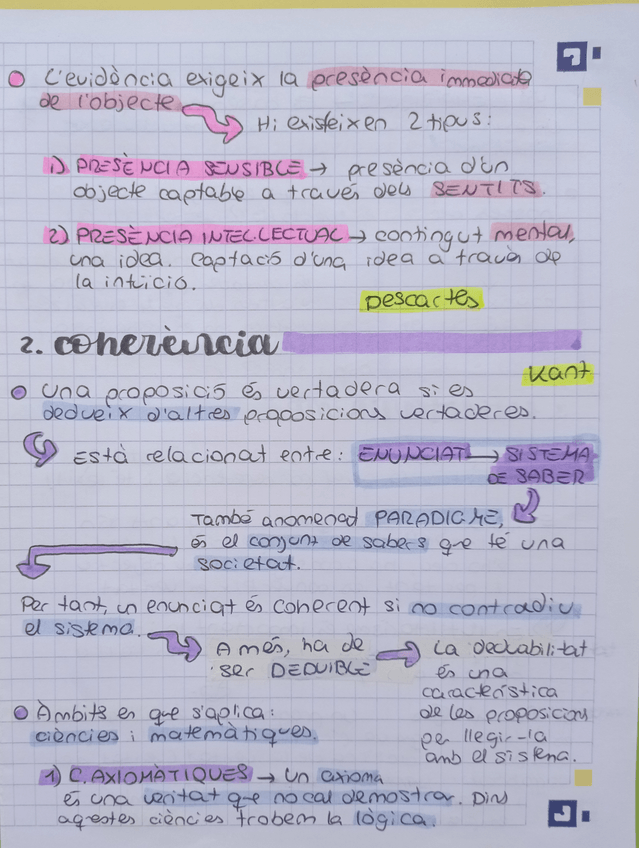 L'evidència exigeix la presència immediata
de l'objecte
Hi existeixen 2 tipus:
1) PRESÈNCIA SENSIBLE → presència d'un
objecte captable a través dels SENTITS.
2) PRESÈNCIA INTEL·LECTUAL → contingut mental,
una idea. Captació d'una idea a través de
la intuïció.
Descartes
2. coherència
Kant
Una proposició és vertadera si es
dedueix d'altres proposicions vertaderes.
Està relacionat entre: ENUNCIAT → SISTEMA
DE SABER
També anomenad PARADIGME,
és el conjunt de sabers que té una
societat.
Per tant, un enunciat és coherent si no contradiu
el sistema.
A més, ha de
ser DEDUIBLE
La deduabilitat
és una
característica
de les proposicions
per llegir-la
amb el sistema.
Àmbits en que s'aplica:
ciències i matemàtiques.
1) C. AXIOMÀTIQUES → Un axioma
és una veritat que no cal demostrar. Dins
aquestes ciències trobem la lògica.